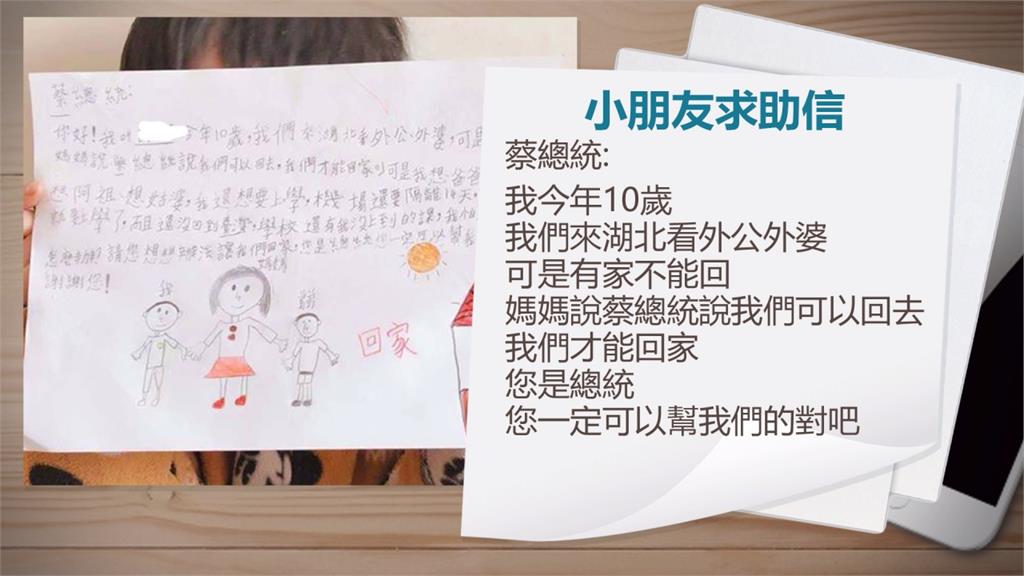 蔡總統:
你好!我叫 今年10歲,我們來湖北看外公外婆,可是
媽媽說蔡總統說我們可以回去,我們才能回家,可是我想爸爸
想阿祖、想姑婆,我還想要上學,機場還要隔離14天,
學校還有我沒上到的課,
怎麼辦 請您想想辦法讓我們回家,您是總統您一定可以幫我
謝謝您!
媽媽
我
回家
小朋友求助信
蔡總統:
我今年10歲
我們來湖北看外公外婆
可是有家不能回
媽媽說蔡總統說我們可以回去
我們才能回家
您是總統
您一定可以幫我們的對吧